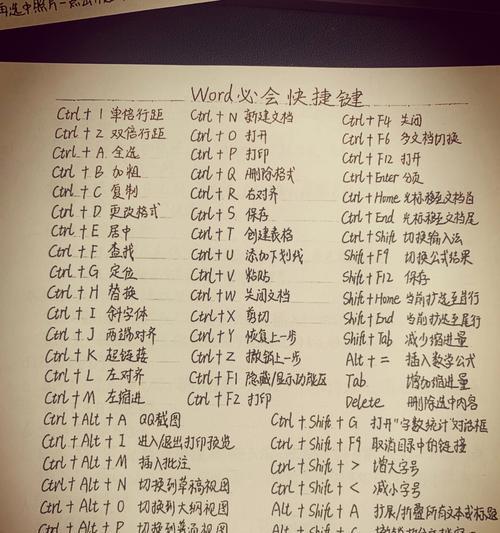 Word必会快捷键
Ctrl + 1 单倍行距
Ctrl + 2 双倍行距
Ctrl + A 全选
Ctrl + B 加粗
Ctrl + C 复制
Ctrl + D 更改格式
Ctrl + E 居中
Ctrl + F 查找
Ctrl + G 定位
Ctrl + H 替换
Ctrl + I 斜字体
Ctrl + J 两端对齐
Ctrl + K 超链接
Ctrl + L 左对齐
Ctrl + M 左缩进
Ctrl + N 新建文档
Ctrl + O 打开
Ctrl + P 打印
Ctrl + Q 删除格式
Ctrl + R 右对齐
Ctrl + S 保存
Ctrl + T 创建表格
Ctrl + U 添加下划线
Ctrl + V 粘贴
Ctrl + W 关闭文档
Ctrl + X 剪切
Ctrl + Y 恢复上一步
Ctrl + Z 撤销上一步
Ctrl + F1 隐藏/显示功能区
Ctrl + F2 打印
Ctrl + F4 关闭
Ctrl + F6 多文档切换
Ctrl + F12 打开
Ctrl + Enter 分页
Ctrl + Home 光标移至文档首
Ctrl + End 光标移至文档尾
Ctrl + Shift 切换输入法
Shift + F9 切换公式结果
Shift + F12 保存
Shift + Home 当前扩选至首行
Shift + End 当前扩选至尾行
Shift + Tab 减少缩进量
Alt + = 插入数学公式
Tab 增加缩进量
Delete 删除选中内容
Ctrl + Alt + A QQ截图
Ctrl + Alt + I 进入/退出打印预览
Ctrl + Alt + M 插入批注
Ctrl + Alt + N 切换到草稿视图
Ctrl + Alt + O 切换到大纲视图
Ctrl + Alt + P 切换到普通视图
Ctrl + Shift + G 打开"字数统计"对话框
Ctrl + Shift + F9 取消目录中的链接
Ctrl + Shift + > 增大字号
Ctrl + Shift + < 减小字号
Alt + Shift + A 扩展/折叠所有文本或标题